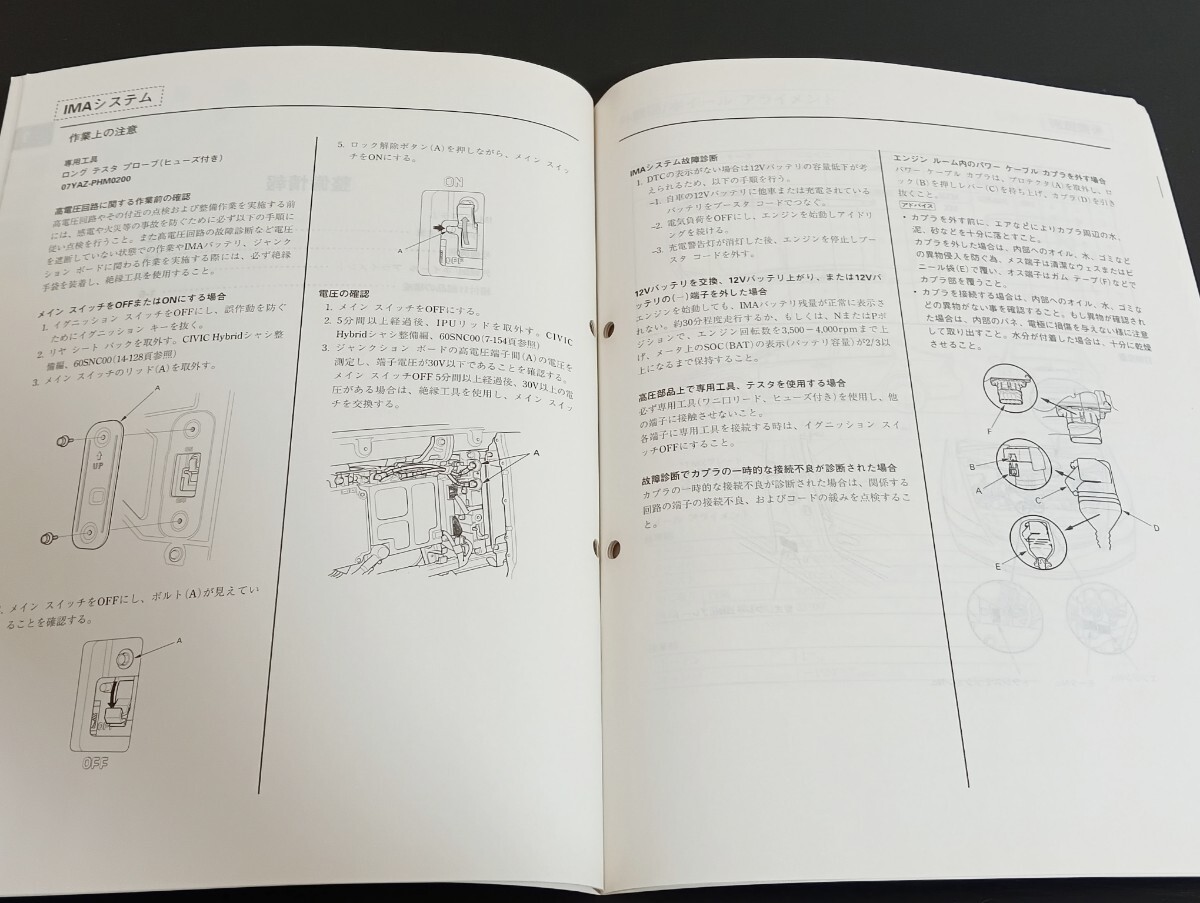 IMAシステム
作業上の注意
専用工具
ロング テスタ プローブ(ヒューズ付き)
07YAZ-PHM0200
高電圧回路に関する作業前の確認
高電圧回路やその付近の点検および整備作業を実施する前
には、感電や火災等の事故を防ぐために必ず以下の手順に
従い点検を行うこと。また高電圧回路の故障診断など電圧
を遮断していない状態での作業やIMAバッテリ、ジャンク
ション ボードに関わる作業を実施する際には、必ず絶縁
手袋を装着し、絶縁工具を使用すること。
メイン スイッチをOFFまたはONにする場合
1. イグニッション スイッチをOFFにし、誤作動を防ぐ
ためにイグニッション キーを抜く。
2. リヤ シート バックを取外す。CIVIC Hybridシャシ整
備編、60SNC00(14-128頁参照)
3. メイン スイッチのリッド(A)を取外す。
A
UP
. メイン スイッチをOFFにし、ボルト(A)が見えてい
ることを確認する。
A
OFF
OFF
5. ロック解除ボタン(A)を押しながら、メイン スイッ
チをONにする。
ON
A
OFF
電圧の確認
1. メイン スイッチをOFFにする。
2. 5分間以上経過後、IPUリッドを取外す。CIVIC
Hybridシャシ整備編、60SNC00(7-154頁参照)
3. ジャンクション ボードの高電圧端子間(A)の電圧を
測定し、端子電圧が30V以下であることを確認する。
メイン スイッチOFF 5分間以上経過後、30V以上の電
圧がある場合は、絶縁工具を使用し、メイン スイッ
チを交換する。
A
IMAシステム故障診断
1. DTCの表示がない場合は12Vバッテリの容量低下が考
えられるため、以下の手順を行う。
-1. 自車の12Vバッテリに他車または充電されている
バッテリをブースタ コードでつなぐ。
-2. 電気負荷をOFFにし、エンジンを始動しアイドリ
ングを続ける。
-3. 充電警告灯が消灯した後、エンジンを停止しブー
スタ コードを外す。
12Vバッテリを交換、12Vバッテリ上がり、または12Vバ
ッテリの(−)端子を外した場合
エンジンを始動しても、IMAバッテリ残量が正常に表示さ
れない。約30分程度走行するか、もしくは、NまたはPポ
ジションで、エンジン回転数を3,500－4,000rpmまで上
げ、メータ上のSOC(BAT)の表示(バッテリ容量)が2/3以
上になるまで保持すること。
高圧部品上で専用工具、テスタを使用する場合
必ず専用工具(ワニ口リード、ヒューズ付き)を使用し、他
の端子に接触させないこと。
各端子に専用工具を接続する時は、イグニッション スイ
ッチOFFにすること。
故障診断でカプラの一時的な接続不良が診断された場合
カプラの一時的な接続不良が診断された場合は、関係する
回路の端子の接続不良、およびコードの緩みを点検するこ
と。
エンジン ルーム内のパワー ケーブル カプラを外す場合
パワー ケーブル カプラは、プロテクタ(A)を取外し、ロ
ック(B)を押しレバー(C)を持ち上げ、カプラ(D)を引き
抜くこと。
アドバイス
・カプラを外す前に、エアなどによりカプラ周辺の水、
泥、砂などを十分に落とすこと。
カプラを外した場合は、内部へのオイル、水、ゴミなど
の異物侵入を防ぐ為、メス端子は清潔なウェスまたはビ
ニール袋(E)で覆い、オス端子はガム テープ(F)などで
カプラ部を覆うこと。
・カプラを接続する場合は、内部へのオイル、水、ゴミな
どの異物がない事を確認すること。もし異物が確認され
た場合は、内部のバネ、電極に損傷を与えない様に注意
して取り出すこと。水分が付着した場合は、十分に乾燥
させること。
F
B
A
C
D
E